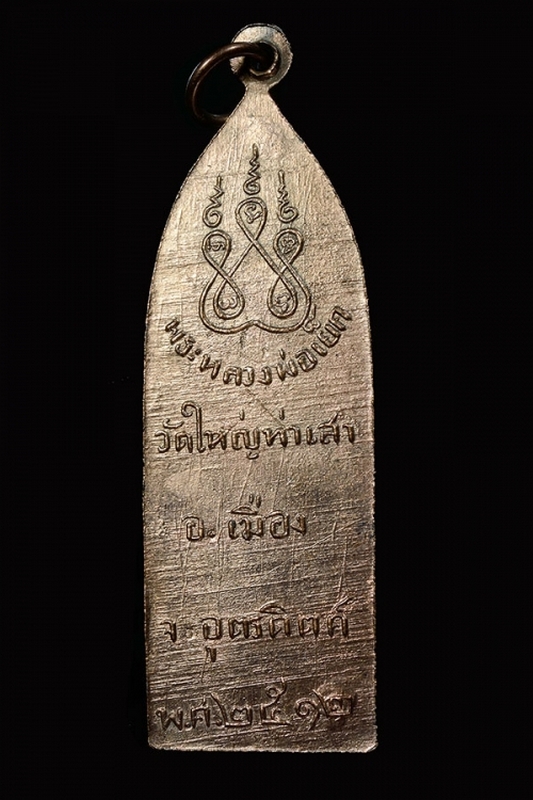 พระหลวงพ่อเย็ก
วัดใหญ่ท่าเสา
อ. เมือง
จ. อุตรดิตถ์
พ.ศ. ๒๕๑๒